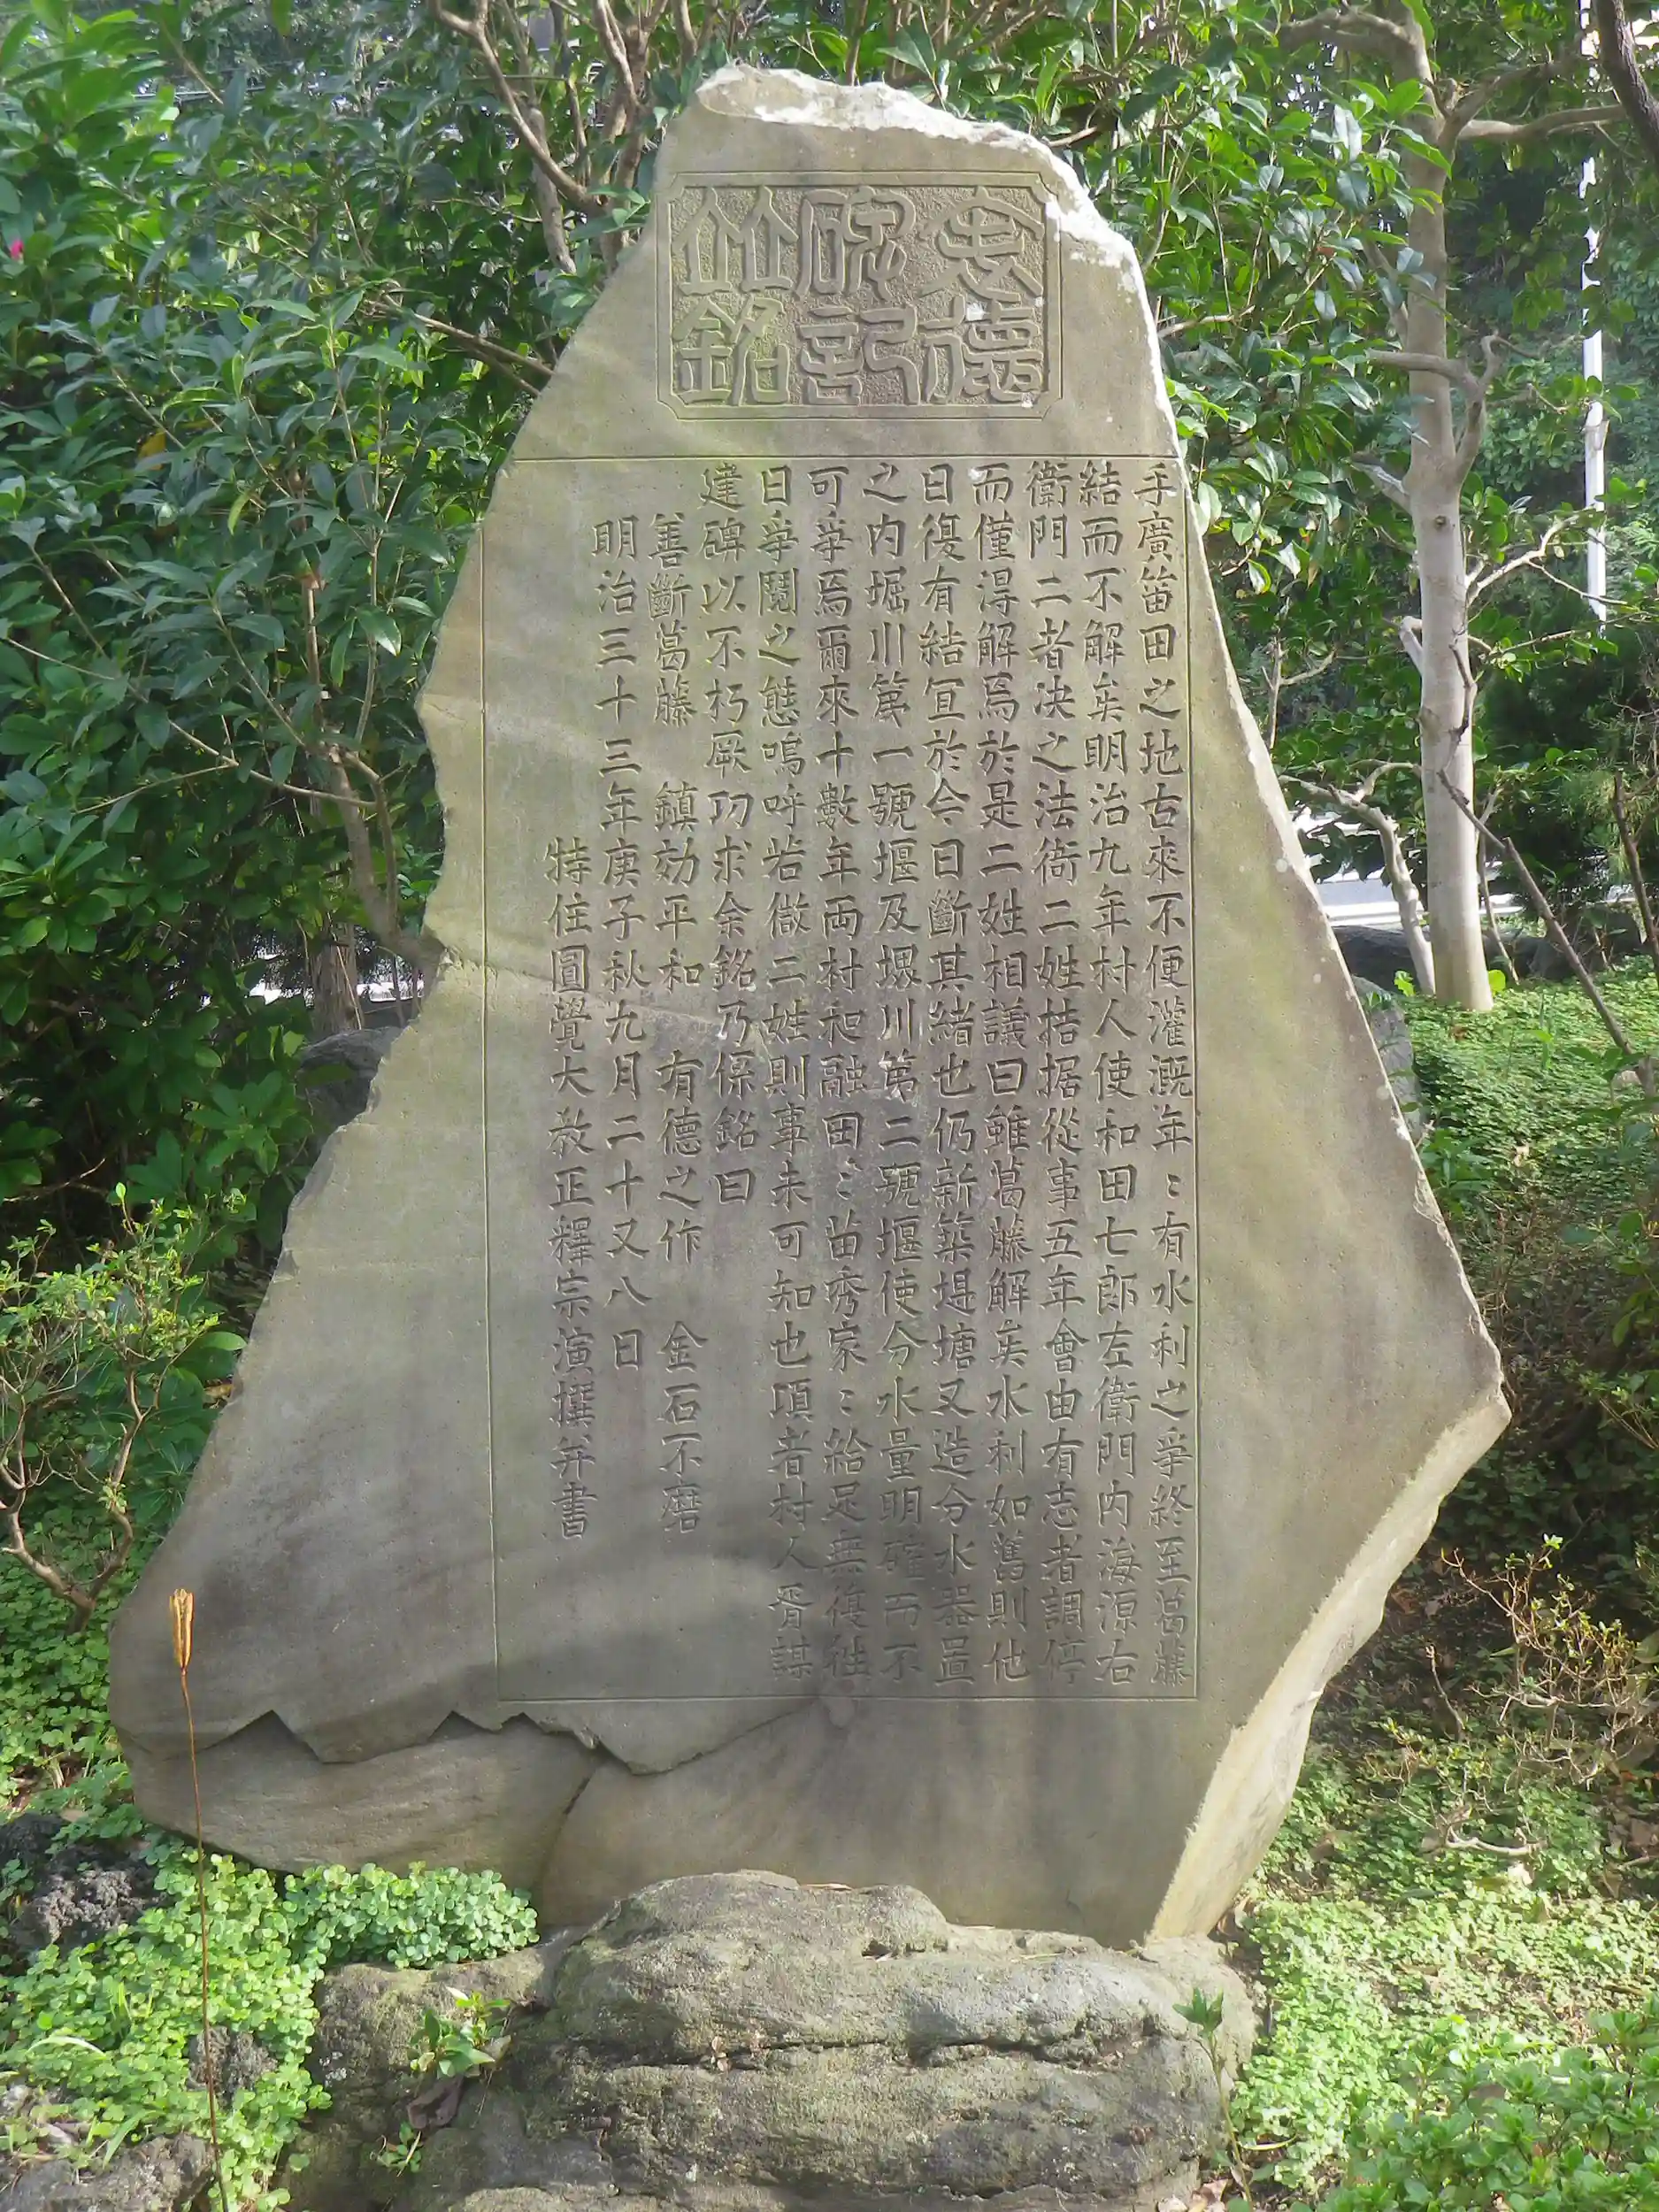 志德
碑記
竝銘
手廣笛田之地古來不便灌溉年〻有水利之爭終至葛藤
結而不解矣明治九年村人使和田七郎左衛門內海源右
衛門二者决之法衙二姓拮据從事五年會由有志者調停
而僅得解焉於是二姓相議曰雖葛藤解矣水利如舊則他
日復有結冝於今日斷其緒也仍新築堤塘又造分水器置
之內堀川第一號堰及堺川第二號堰使分水量明確而不
可爭焉爾來十數年両村和融田〻苗秀家〻給足無復往
日爭鬩之態嗚呼若微二姓則事未可知也項者村人胥謀
建碑以不朽厥功求余銘乃係銘曰
善斷葛藤 鎮効平和 有德之作 金石不磨
明治三十三年庚子秋九月二十又八日
特住圓覺大教正釋宗演撰并書